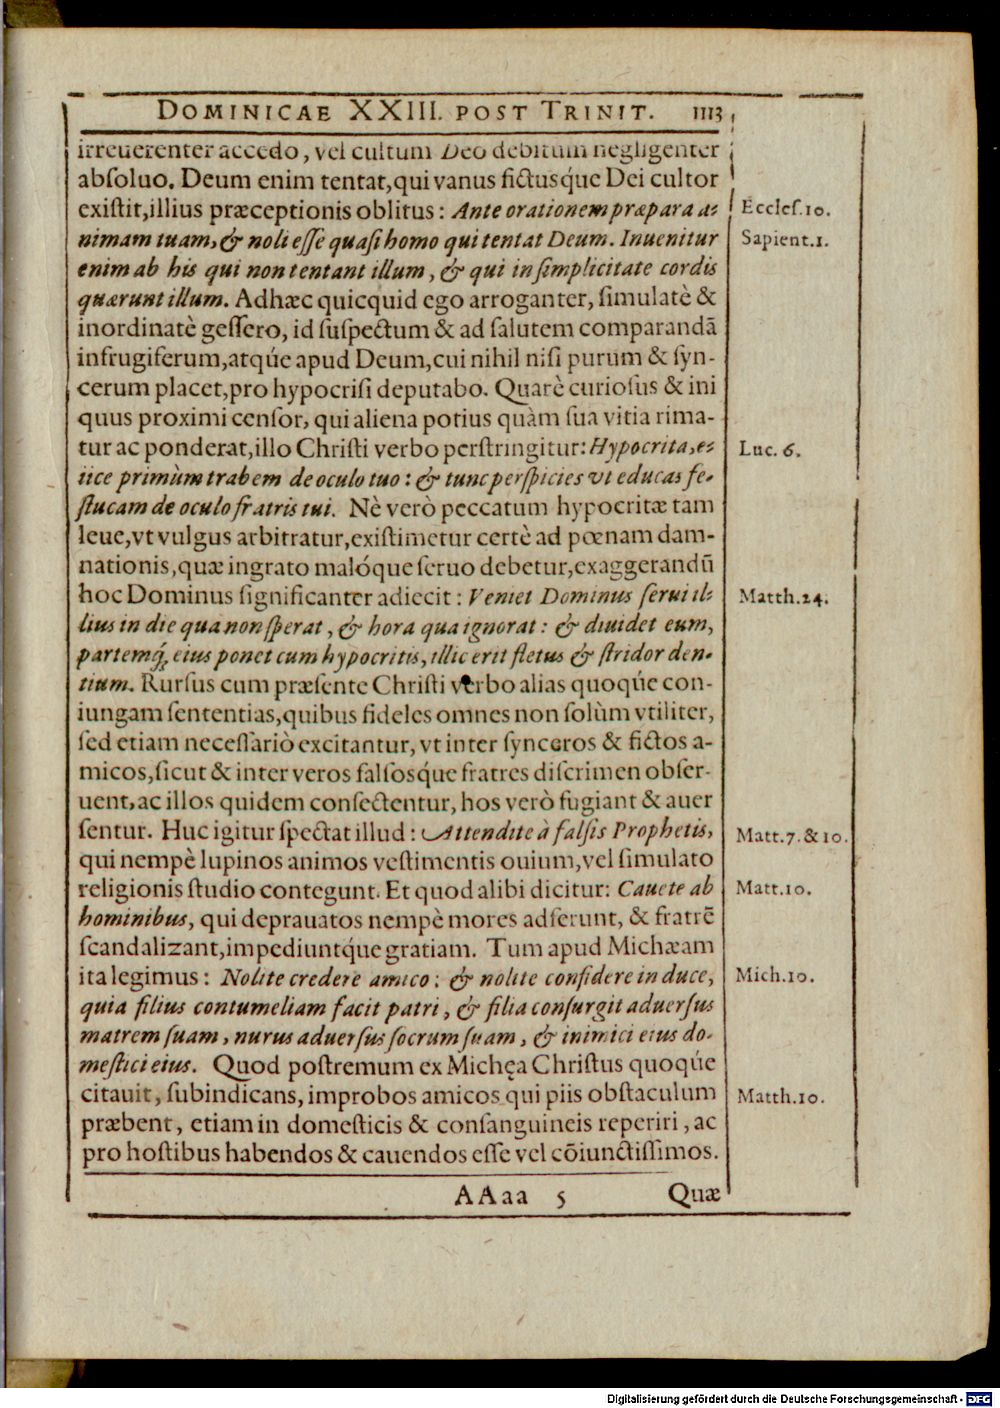 DOMINICAE XXIII. POST TRINIT. 1113
irreuerenter accedo, vel cultum Deo debitum negligenter
absoluo. Deum enim tentat, qui vanus fictusq́ue Dei cultor
existit, illius præceptionis oblitus: Ante orationem præpara a-
Eccles. 10.
nimam tuam, & noli esse quasi homo qui tentat Deum. Inuenitur
Sapient. 1.
enim ab his qui non tentant illum, & qui in simplicitate cordis
quærunt illum. Adhæc quicquid ego arroganter, simulatè &
inordinatè gessero, id suspectum & ad salutem comparandā
infrugiferum, atq́ue apud Deum, cui nihil nisi purum & syn-
cerum placet, pro hypocrisi deputabo. Quarè curiosus & ini
quus proximi censor, qui aliena potius quàm sua vitia rima-
tur ac ponderat, illo Christi verbo perstringitur: Hypocrita, e-
Luc. 6.
iice primùm trabem de oculo tuo: & tunc perspicies vt educas fe-
stucam de oculo fratris tui. Nè verò peccatum hypocritæ tam
leue, vt vulgus arbitratur, existimetur certè ad pœnam dam-
nationis, quæ ingrato malóque seruo debetur, exaggerandū
hoc Dominus significanter adiecit: Veniet Dominus serui il-
Matth. 24.
lius in die qua non sperat, & hora qua ignorat: & diuidet eum,
partemq́; eius ponet cum hypocritis, illic erit fletus & stridor den-
tium. Rursus cum præsente Christi verbo alias quoq́ue con-
iungam sententias, quibus fideles omnes non solùm vtiliter,
sed etiam necessariò excitantur, vt inter synceros & fictos a-
micos, sicut & inter veros falsosq́ue fratres discrimen obser-
uent, ac illos quidem consectentur, hos verò fugiant & auer
sentur. Huc igitur spectat illud: Attendite à falsis Prophetis,
Matt. 7. & 10.
qui nempè lupinos animos vestimentis ouium, vel simulato
religionis studio contegunt. Et quod alibi dicitur: Cauete ab
Matt. 10.
hominibus, qui deprauatos nempè mores adserunt, & fratrē
scandalizant, impediuntq́ue gratiam. Tum apud Michæam
ita legimus: Nolite credere amico: & nolite confidere in duce,
Mich. 10.
quia filius contumeliam facit patri, & filia consurgit aduersus
matrem suam, nurus aduersus socrum suam, & inimici eius do-
mestici eius. Quod postremum ex Michęa Christus quoq́ue
citauit, subindicans, improbos amicos qui piis obstaculum
Matth. 10.
præbent, etiam in domesticis & consanguineis reperiri, ac
pro hostibus habendos & cauendos esse vel cōiunctissimos.
AAaa 5 Quæ
Digitalisierung gefördert durch die Deutsche Forschungsgemeinschaft - DFG